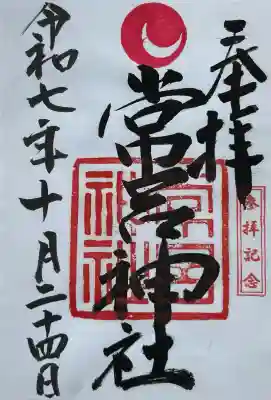 奉拝
参拝記念
常宮神社
常宮神社
令和七年十月二十四日